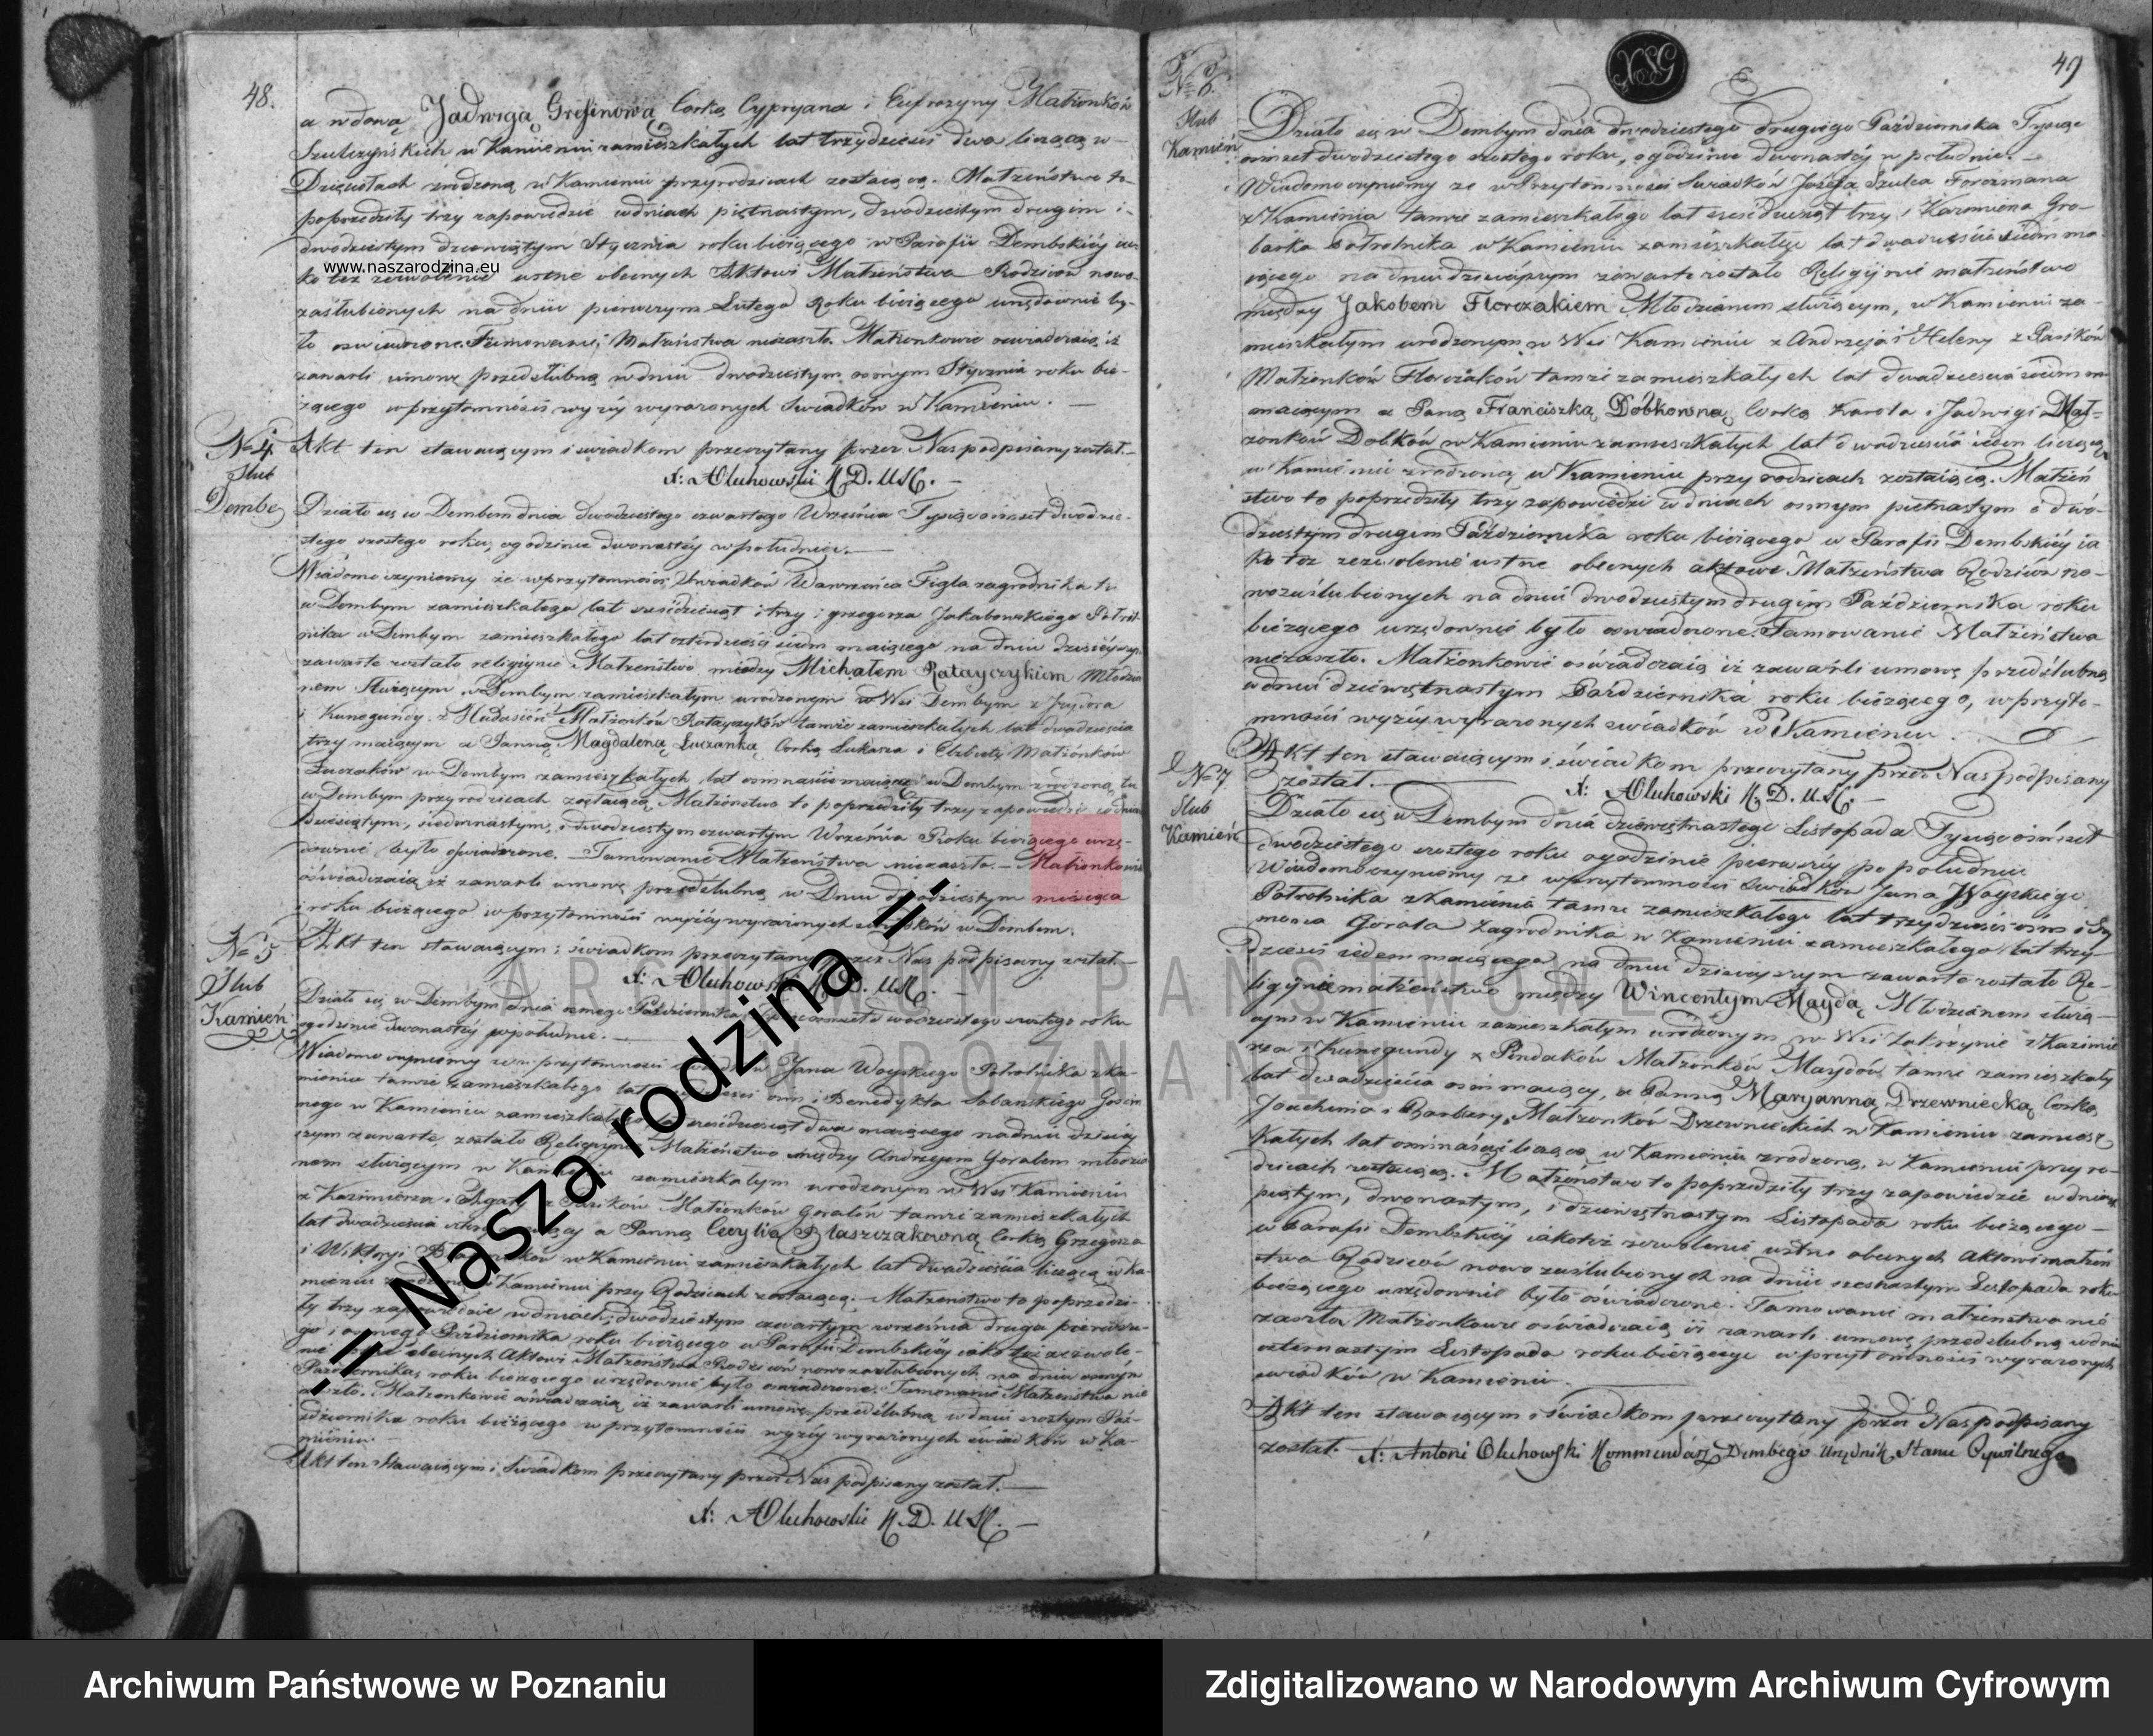 48.
a wdową Jadwigą Gresinową Corką Cypryana i Eufrozyny Małżonków
Szulczyńskich w Kamieniu zamieszkałych lat trzydzieści dwa liczącą w
zrodzoną w Kamieniu przy rodzicach zostaiącą. Małżeństwo to
poprzedziły trzy zapowiedzie w dniach piętnastym, dwudziestym drugim i
dwudziestym dziewiątym Stycznia roku bieżącego w Parafii Dembskiéy ia-
www.naszarodzina.eu
ko też zezwolenie ustne obecnych Aktowi Małżeństwa Rodziców nowo-
zaślubionych na dniu pierwszym Lutego Roku bieżącego urzędownie by-
ło oswiadczone. Tamowanie Małżeństwa niezaszło. Małżonkowie oswiadczaią iż
zawarli umowę przedslubną w dniu dwudziestym osmym Stycznia roku bie-
żącego w przytomności wyżéy wyrażonych Swiadków w Kamieniu. —
No 4 Akt ten stawaiącym i swiadkom przeczytany przez Nas podpisany został. —
Slub
X: AOluhowski K.D. USC. —
Dembe
Działo się w Dembem dnia dwudziestego czwartego Września Tysiąc ośmset dwudzie-
stego szostego roku, o godzinie dwunastéy w południe. —
Wiadomo czyniemy że w przytomności Swiadków Wawrzeńca Figla zagrodnika tu
w Dembym zamieszkałego lat sześcdziesiąt i trzy i grzegorza Jakubowskiego Półrol-
nika w Dembym zamieszkałego lat czterdzieści siedm maiącego na dniu dzisiéyszym
zawarte zostało religiynie Małżeństwo między Michałem Ratayczykiem Młodzia-
nem służącym w Dembym zamieszkałym urodzonym w Wsi Dembym z Izydora
i Kunegundy z Małżonków Ratayczyków tamże zamieszkałych lat dwadzieścia
trzy maiącym a Panną Magdaleną Łuczanką Corką Łukasza i Elzbiety Małżonków
Łuczaków w Dembym zamieszkałych lat ośmnaście maiącą w Dembym zrodzoną, tu
w Dembym przy rodzicach zostaiącą. Małżeństwo to poprzedziły trzy zapowiedzie w dniach
dziesiątym, siedmnastym, i dwudziestym czwartym Września Roku bieżącego urzę-
downie było oświadczone. — Tamowanie Małżeństwa niezaszło. — Małżonkowie
oświadczaią iż zawarli umowę przedślubną w Dniu dwudziestym miesiąca
i roku bieżącego w przytomności wyżéy wyrażonych swiadków w Dembem.
No 5
Akt ten stawaiącym i świadkom przeczytany przez Nas podpisany został. —
Slub
X: AOluhowski K.D. USC. —
Kamień
Działo się w Dembym dnia osmego Października Tysiąc ośmset dwudziestego szostego roku
o godzinie dwunastéy w południe. —
Wiadomo czyniemy że w przytomności Swiadków Jana Woyskiego Półrolnika z Ka-
mienia tamże zamieszkałego lat trzydzieści ośm i Benedykta Sobańskiego Gościn-
nego w Kamieniu zamieszkałego lat sześcdziesiąt dwa maiącego na dniu dzisiéy-
szym zawarte zostało Religiynie Małżeństwo między Andrzejem Goralem młodzia-
nem służącym w Kamieniu zamieszkałym urodzonym w Wsi Kamieniu
z Kazimierza i Agaty z Pasików Małżonków Goralów tamże zamieszkałych
lat dwadzieścia maiący a Panną Cecylią Błaszczakowną Corką Grzegorza
i Wiktoryi Błaszczaków w Kamieniu zamieszkałych lat dwadzieścia liczącą w Ka-
mieniu zrodzoną w Kamieniu przy Rodzicach zostaiącą. Małżeństwo to poprzedzi-
ły trzy zapowiedzie w dniach, dwudziestym czwartym września druga pierwsze-
go i osmego Października roku bieżącego w Parafii Dembskiéy iako też zezwole-
nie ustne obecnych Aktowi Małżeństwa Rodziców nowozaslubionych na dniu osmym
Października roku bieżącego urzędownie było oswiadczone. Tamowanie Małżeństwa nie
zaszło. Małżonkowie oświadczaią iż zawarli umowę przedślubną w dniu szostym Paź-
dziernika roku bieżącego w przytomności wyżéy wyrażonych świadków w Ka-
mieniu.
Akt ten stawaiącym i Swiadkom przeczytany przez Nas podpisany został. —
X: AOluhowski K.D. USC. —
49
No 6.
Slub
Kamień
Działo się w Dembym dnia dwudziestego drugiego Października Tysiąc
ośmset dwudziestego szostego roku, o godzinie dwunastéy w południe. —
Wiadomo czyniemy że w Przytomności Swiadków Józefa Szulca Forszmana
z Kamienia tamże zamieszkałego lat sześćdziesiąt trzy i Kazimierza Gro-
barka Półrolnika w Kamieniu zamieszkałego lat dwadzieścia siedm ma-
iącego na dniu dzisiéyszym zawarte zostało Religiynie małżeństwo
między Jakobem Florczakiem Młodzianem służącym, w Kamieniu za-
mieszkałym urodzonym w Wsi Kamieniu z Andrzeja i Heleny z Pasików
Małżonków Florczaków tamże zamieszkałych lat dwadzieścia siedm
maiącym a Panną Franciszką Dobkowną Corką Karola i Jadwigi Mał-
żonków Dobków w Kamieniu zamieszkałych lat dwadzieścia ieden liczącą
w Kamieniu zrodzoną w Kamieniu przy rodzicach zostaiącą. Małżeń
stwo to poprzedziły trzy zapowiedzi w dniach osmym piętnastym i dwu-
dziestym drugim Października roku bieżącego w Parafii Dembskiéy ia
ko też zezwolenie ustne obecnych aktowi Małżeństwa Rodziców no-
wozaślubionych na dniu dwudziestym drugim Października roku
bieżącego urzędownie było oswiadczone. Tamowanie Małżeństwa
niezaszło. Małżonkowie oświadczaią iż zawarli umowę przedślubną
w dniu dziewiętnastym Października roku bieżącego, w przyto-
mności wyżéy wyrażonych swiadków w Kamieniu.
Akt ten stawaiącym i świadkom przeczytany przez Nas podpisany
No 7
został. — X: AOluhowski K.D. U.S.C. —
Slub
Kamień
Działo się w Dembym dnia dziewiętnastego Listopada Tysiąc ośmset
dwudziestego szostego roku o godzinie pierwszéy po południu
Wiadomo czyniemy że w przytomności Swiadków Jana Woyskiego
Półrolnika z Kamienia tamże zamieszkałego lat trzydzieści ośm i Szy
mona Gorala Zagrodnika w Kamieniu zamieszkałego lat trzy-
dzieści siedem maiącego na dniu dzisiéyszym zawarte zostało Re-
ligiynie małżeństwo między Wincentym Maydą Młodzianem służą-
cym w Kamieniu zamieszkałym urodzonym w Wsi Zakrzynie z Kazimie
rza i Kunegundy z Pendaków Małżonków Maydów tamże zamieszkały
lat dwadzieścia ośm maiący, a Panną Maryanną Drzewniecką Corką
Joachima i Barbary Małżonków Drzewnieckich w Kamieniu zamiesz
kałych lat ośmnaście liczącą w Kamieniu zrodzoną, w Kamieniu przy ro-
dzicach zostaiącą. Małżeństwo to poprzedziły trzy zapowiedzie w dniach
piątym, dwunastym, i dziewiętnastym Listopada roku bieżącego —
w Parafii Dembskiéy iako też zezwolenie ustne obecnych Aktowi małżeń
stwa Rodziców nowo zaślubionych na dniu szesnastym Listopada roku
bieżącego urzędownie było oświadczone. Tamowanie małżeństwa nie
zaszło Małżonkowie oświadczaią iż zawarli umowę przedslubną w dniu
czternastym Listopada roku bieżącego w przytomności wyrażonych
swiadków w Kamieniu.
Akt ten stawaiącym i świadkom przeczytany przez Nas podpisany
został. X: Antoni Oluhowski Kommendarz Dembego Urzędnik Stanu Cywilnego
ARCHIWUM PAŃSTWOWE
W POZNANIU
-= Nasza rodzina =-
Archiwum Państwowe w Poznaniu
Zdigitalizowano w Narodowym Archiwum Cyfrowym